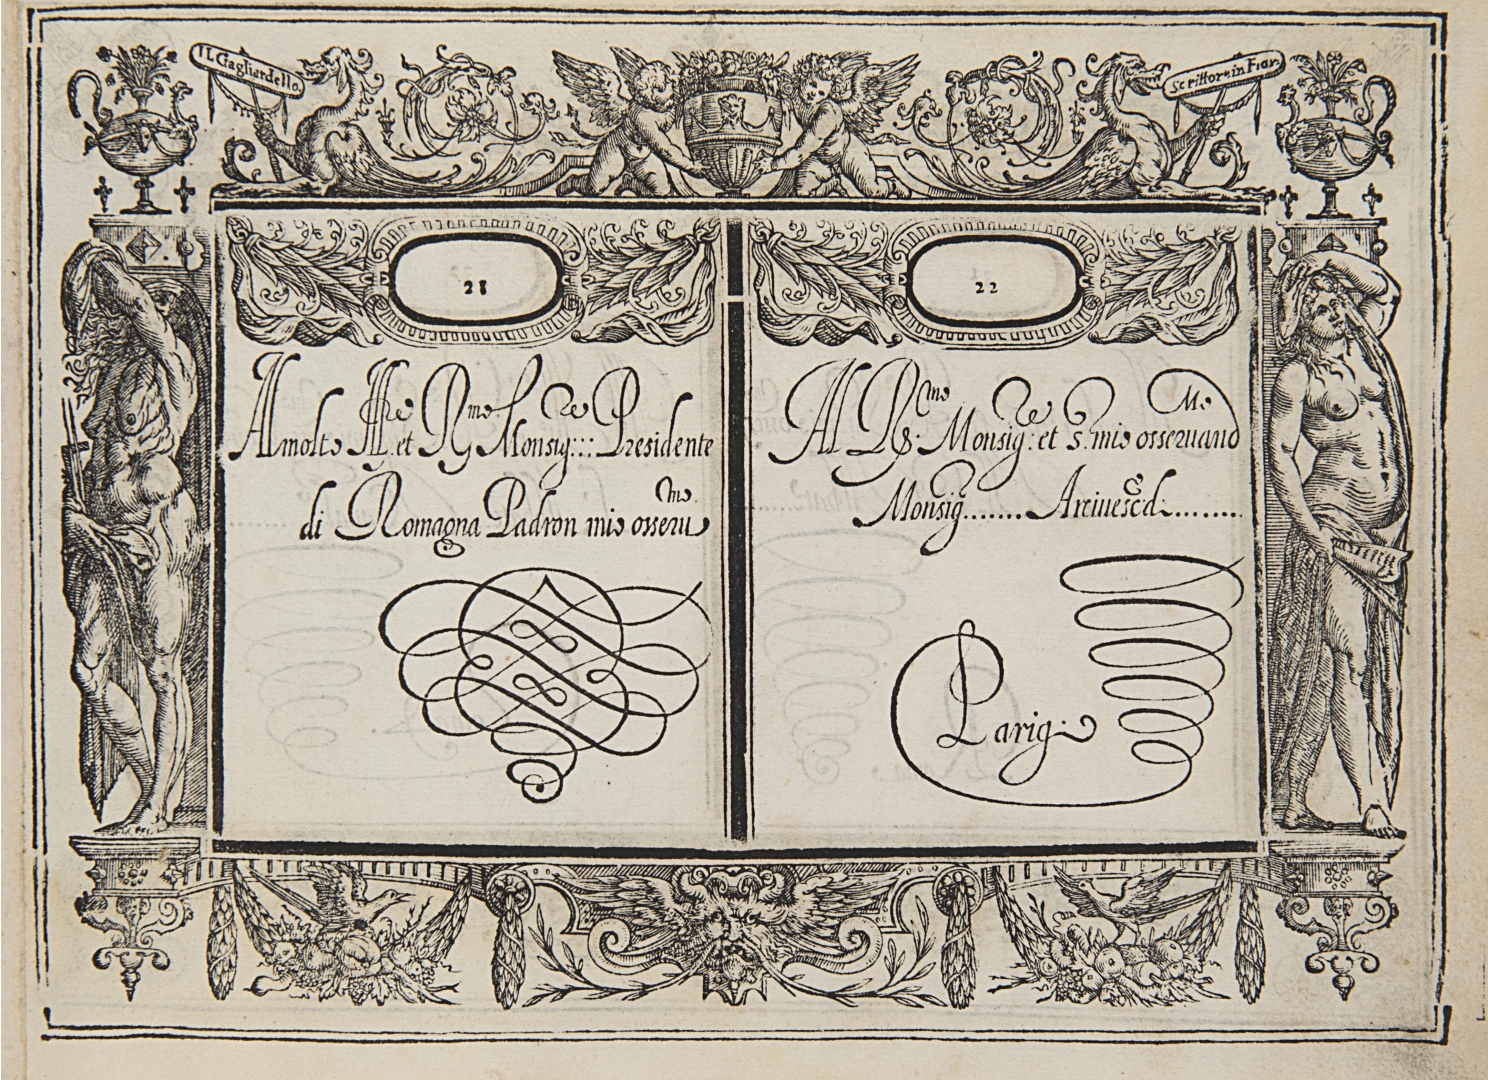 IL Gagliardello
Scrittore in Fior.
21
Al molto Ill.re et R.mo Monsig.re::: Presidente
di Romagna Padron mio osseru.mo
22
Al R.mo Monsig.re et S. mio osseruand.mo
Monsig....... Arciuesc.d:.......
Parig: